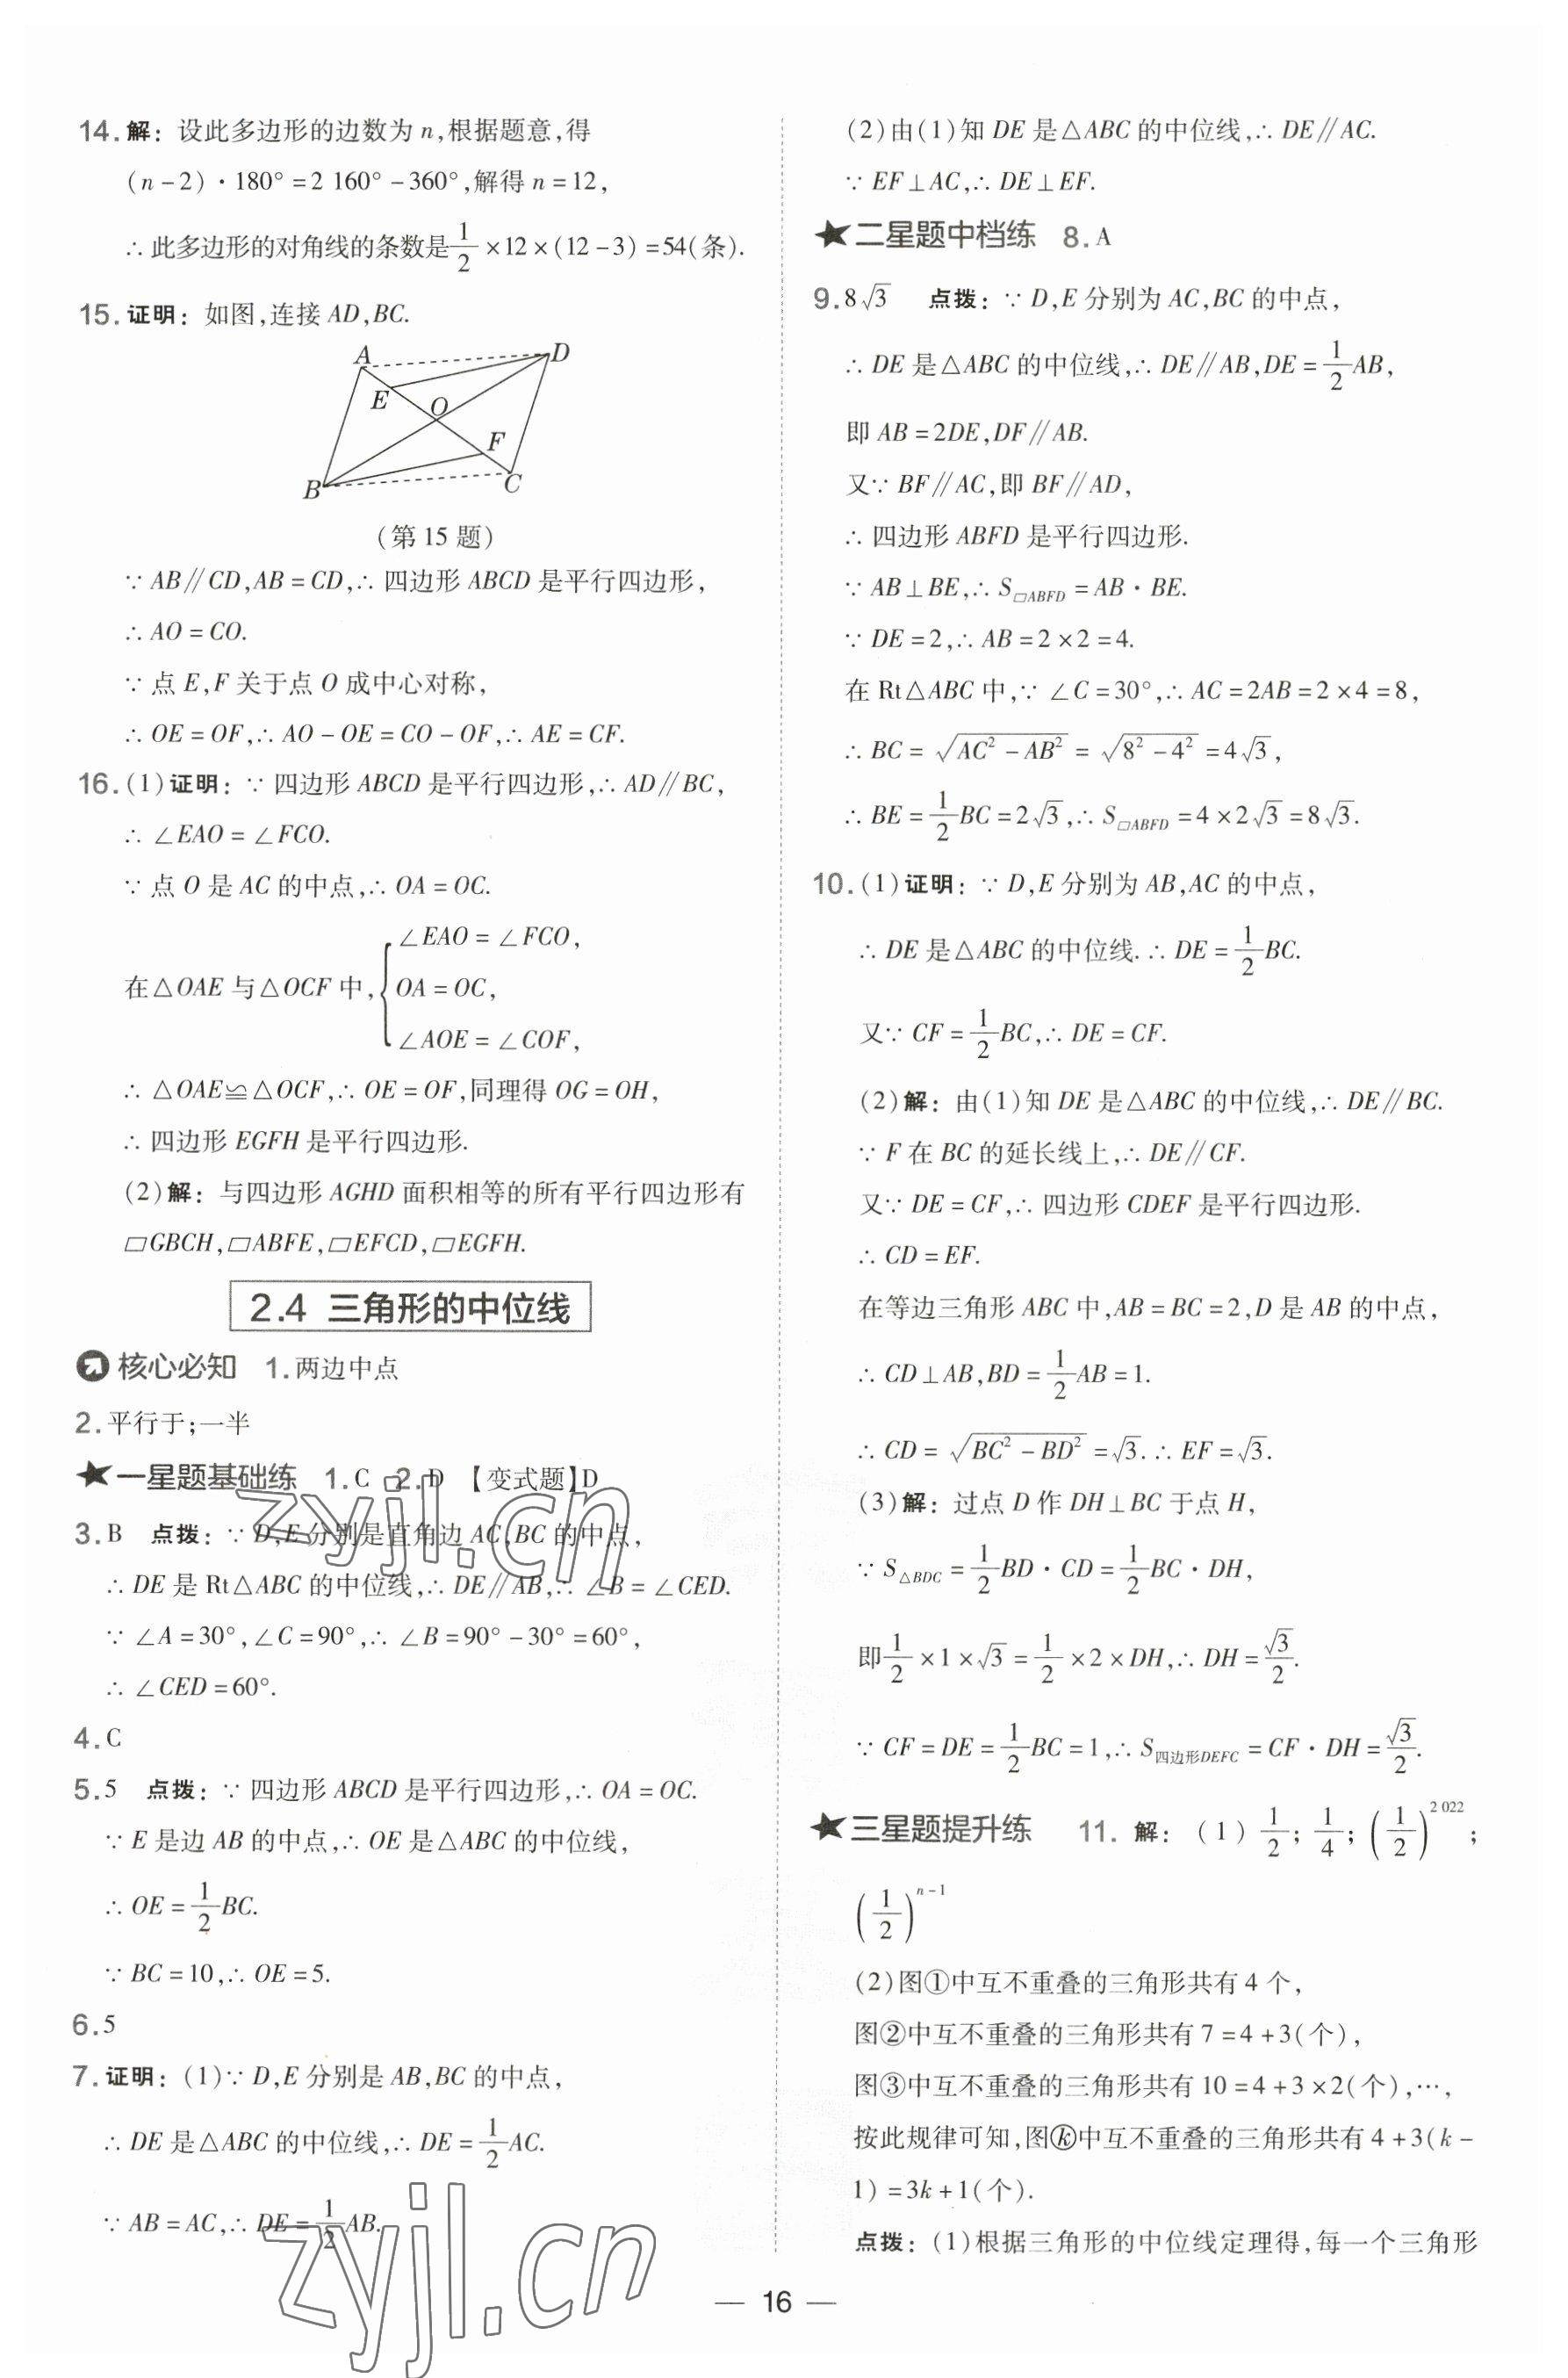 14.解：设此多边形的边数为 n,根据题意,得
(n－2)·180°＝2 160°－360°,解得 n＝12,
∴此多边形的对角线的条数是1/2×12×(12－3)＝54(条).
15.证明：如图,连接 AD,BC.
A D
E O
F
B C
(第 15 题)
∵ AB∥CD,AB＝CD,∴ 四边形 ABCD 是平行四边形,
∴ AO＝CO.
∵ 点 E,F 关于点 O 成中心对称,
∴ OE＝OF,∴ AO－OE＝CO－OF,∴ AE＝CF.
16.(1)证明：∵ 四边形 ABCD 是平行四边形,∴ AD∥BC,
∴ ∠EAO＝∠FCO.
∵ 点 O 是 AC 的中点,∴ OA＝OC.
在△OAE 与△OCF 中,{∠EAO＝∠FCO,
OA＝OC,
∠AOE＝∠COF,
∴ △OAE≌△OCF,∴ OE＝OF,同理得 OG＝OH,
∴ 四边形 EGFH 是平行四边形.
(2)解：与四边形 AGHD 面积相等的所有平行四边形有
▱GBCH,▱ABFE,▱EFCD,▱EGFH.
2.4 三角形的中位线
核心必知 1.两边中点
2.平行于;一半
★一星题基础练 1.C 2.D 【变式题】D
3.B 点拨：∵ D,E 分别是直角边 AC,BC 的中点,
∴ DE 是 Rt△ABC 的中位线,∴ DE∥AB,∴ ∠B＝∠CED.
∵ ∠A＝30°,∠C＝90°,∴ ∠B＝90°－30°＝60°,
∴ ∠CED＝60°.
4.C
5.5 点拨：∵ 四边形 ABCD 是平行四边形,∴ OA＝OC.
∵ E 是边 AB 的中点,∴ OE 是△ABC 的中位线,
∴ OE＝1/2BC.
∵ BC＝10,∴ OE＝5.
6.5
7.证明：(1)∵ D,E 分别是 AB,BC 的中点,
∴ DE 是△ABC 的中位线,∴ DE＝1/2AC.
∵ AB＝AC,∴ DE＝1/2AB.
(2)由(1)知 DE 是△ABC 的中位线,∴ DE∥AC.
∵ EF⊥AC,∴ DE⊥EF.
★二星题中档练 8.A
9.8√3 点拨：∵ D,E 分别为 AC,BC 的中点,
∴ DE 是△ABC 的中位线,∴ DE∥AB,DE＝1/2AB,
即 AB＝2DE,DF∥AB.
又∵ BF∥AC,即 BF∥AD,
∴ 四边形 ABFD 是平行四边形.
∵ AB⊥BE,∴ S▱ABFD＝AB·BE.
∵ DE＝2,∴ AB＝2×2＝4.
在 Rt△ABC 中,∵ ∠C＝30°,∴ AC＝2AB＝2×4＝8,
∴ BC＝√(AC²－AB²)＝√(8²－4²)＝4√3,
∴ BE＝1/2BC＝2√3,∴ S▱ABFD＝4×2√3＝8√3.
10.(1)证明：∵ D,E 分别为 AB,AC 的中点,
∴ DE 是△ABC 的中位线.∴ DE＝1/2BC.
又∵ CF＝1/2BC,∴ DE＝CF.
(2)解：由(1)知 DE 是△ABC 的中位线,∴ DE∥BC.
∵ F 在 BC 的延长线上,∴ DE∥CF.
又∵ DE＝CF,∴ 四边形 CDEF 是平行四边形.
∴ CD＝EF.
在等边三角形 ABC 中,AB＝BC＝2,D 是 AB 的中点,
∴ CD⊥AB,BD＝1/2AB＝1.
∴ CD＝√(BC²－BD²)＝√3.∴ EF＝√3.
(3)解：过点 D 作 DH⊥BC 于点 H,
∵ S△BDC＝1/2BD·CD＝1/2BC·DH,
即1/2×1×√3＝1/2×2×DH,∴ DH＝√3/2.
∵ CF＝DE＝1/2BC＝1,∴ S四边形DEFC＝CF·DH＝√3/2.
★三星题提升练 11.解：(1)1/2;1/4;(1/2)^2 022;
(1/2)^n－1
(2)图①中互不重叠的三角形共有 4 个,
图②中互不重叠的三角形共有 7＝4＋3(个),
图③中互不重叠的三角形共有 10＝4＋3×2(个),…,
按此规律可知,图ⓚ中互不重叠的三角形共有 4＋3(k－
1)＝3k＋1(个).
点拨：(1)根据三角形的中位线定理得,每一个三角形
— 16 —
zyjl.cn
zyjl.cn